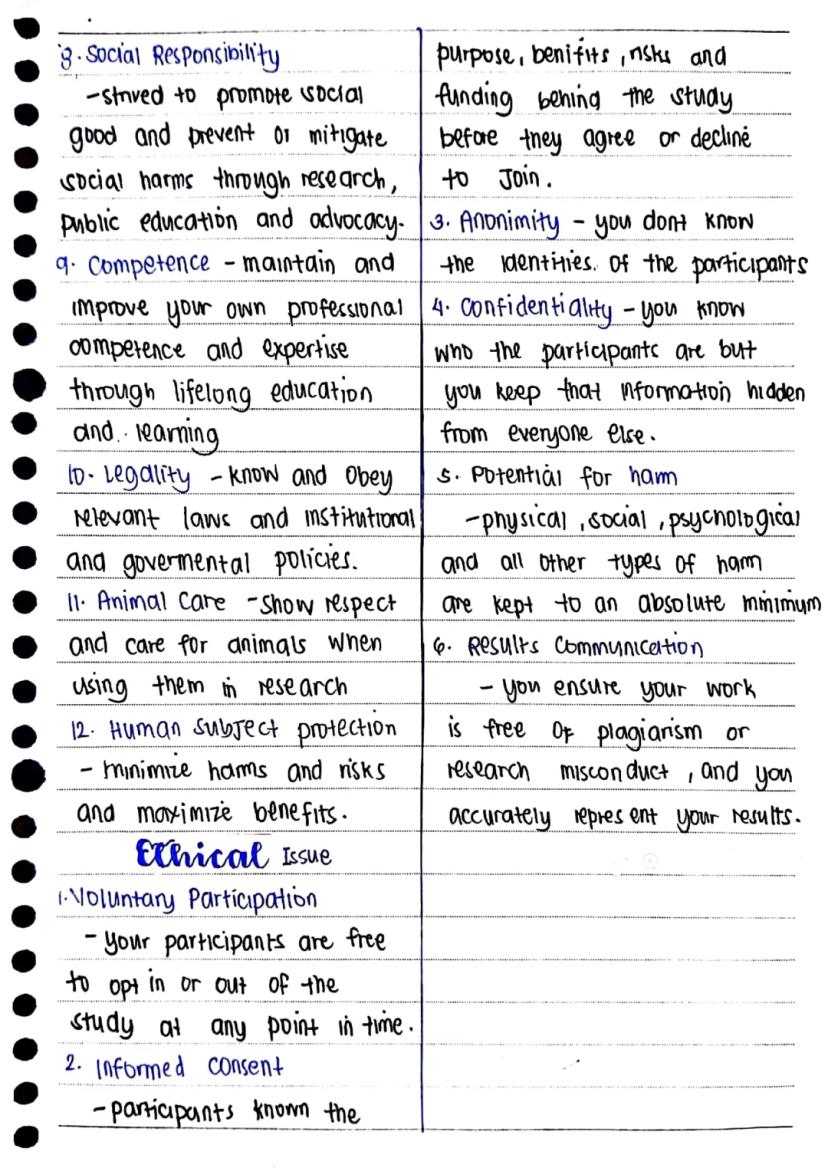 8. Social Responsibility
- strived to promote social
good and prevent or mitigate
social harms through research,
public education and advocacy.
9. Competence - maintain and
improve your own professional
competence and expertise
through lifelong education
and learning
10. Legality - know and obey
relevant laws and institutional
and govermental policies.
11. Animal Care - Show respect
and care for animals when
using them in research
12. Human Subject protection
- minimize harms and risks
and maximize benefits.
Ethical Issue
1. Voluntary Participation
- Your participants are free
to opt in or out of the
study at any point in time.
2. Informed consent
- participants known the
purpose, benifits, risks and
funding behind the study
before they agree or decline
to Join.
3. Anonimity - you dont know
the identities. of the participants
4. Confidentiality - you know
who the participants are but
you keep that information hidden
from everyone else.
5. Potential for harm
- physical, social, psychological
and all other types of harm
are kept to an absolute minimum
6. Results Communication
- you ensure your work
is free of plagiarism or
research misconduct, and you
accurately represent your results.